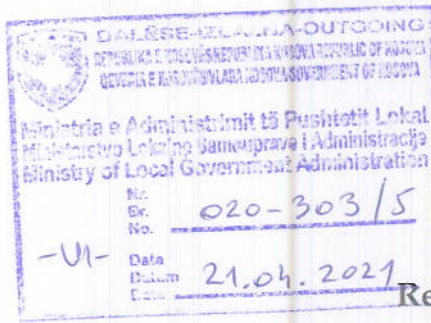 DALËSE-IZLAZNA-OUTGOING
REPUBLIKA E KOSOVËS REPUBLIKA KOSOVA REPUBLIC OF KOSOVA
QEVERIA E KOSOVËS VLADA KOSOVA GOVERNMENT OF KOSOVA
Ministria e Administrimit të Pushtetit Lokal
Ministarstvo Lokalne Samouprave i Administracije
Ministry of Local Government Administration
Nr.
Br.
No. 020-303/5
-VI-
Data
Datum
Date 21.04.2021
Re